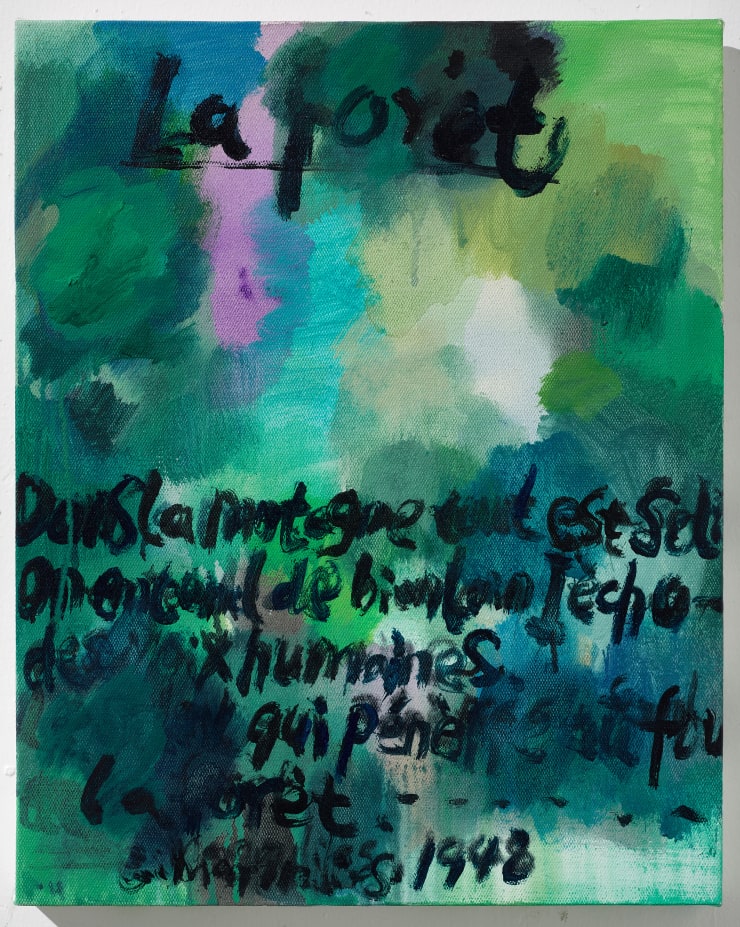 La forèt
Dans la montagne tout est Soli
On entend de bien loin l'écho-
des voix humaines.
qui pénètre au fou
la forèt
1948